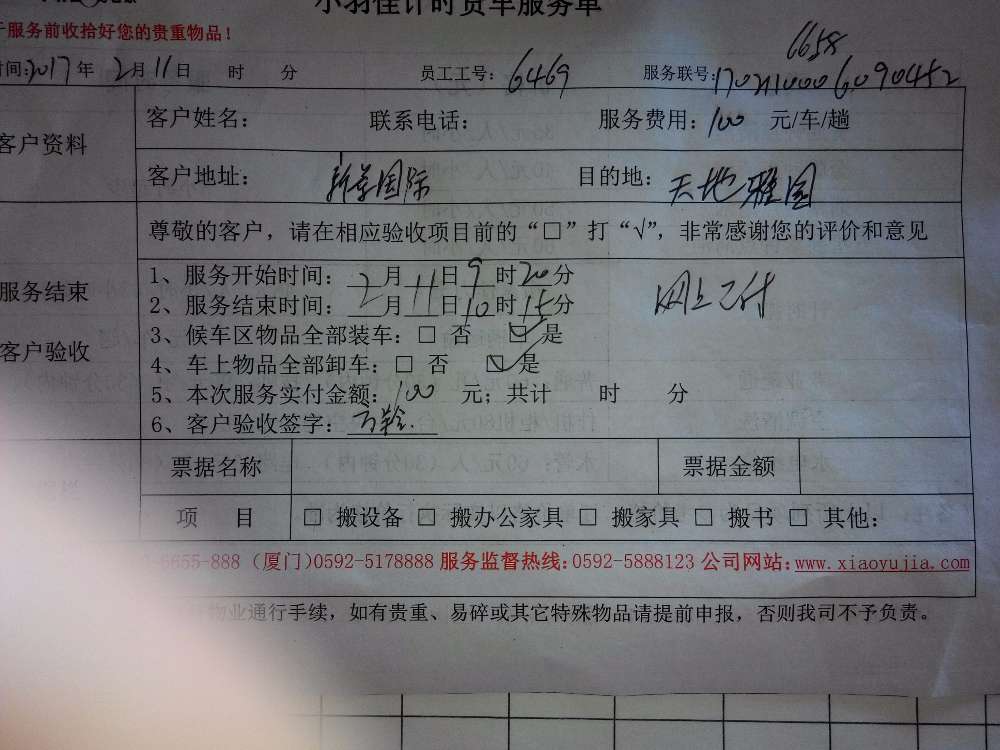 小羽佳计时货车服务单
服务前收拾好您的贵重物品！
时间：2017年 2月11日 时 分 员工工号：6469 服务联号：1702110006090452
6658
客户资料
客户姓名： 联系电话： 服务费用：100 元/车/趟
客户地址： 国际 目的地：天地雅园
尊敬的客户，请在相应验收项目前的“□”打“√”，非常感谢您的评价和意见
服务结束
客户验收
1、服务开始时间：2月11日9时20分
2、服务结束时间：2月11日10时15分
网上已付
3、候车区物品全部装车：□ 否 ☑ 是
4、车上物品全部卸车：□ 否 ☑ 是
5、本次服务实付金额：100 元；共计 时 分
6、客户验收签字：
票据名称 票据金额
项 目 □ 搬设备 □ 搬办公家具 □ 搬家具 □ 搬书 □ 其他：
6655-888 (厦门)0592-5178888 服务监督热线：0592-5888123 公司网站：www.xiaoyujia.com
物业通行手续，如有贵重、易碎或其它特殊物品请提前申报，否则我司不予负责。